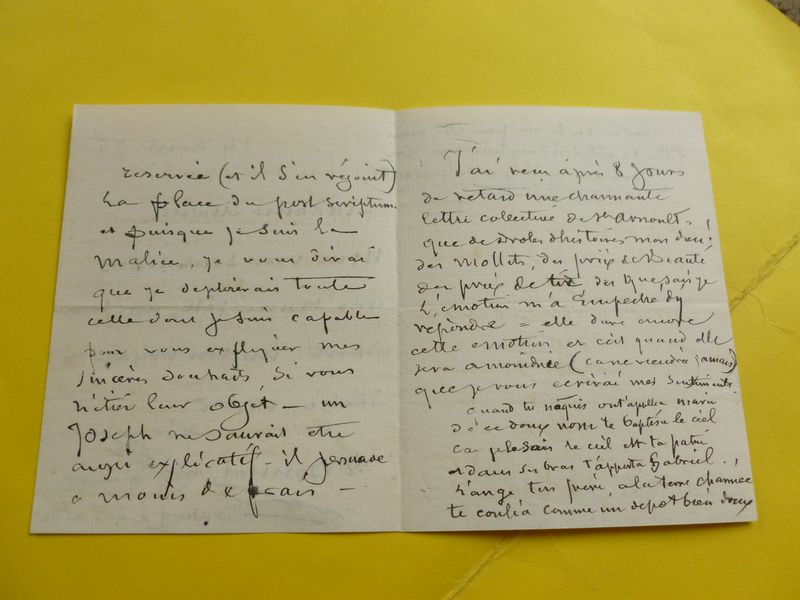 reservée (et il s'en réjouit)
la place du post scriptum.
et puisque je suis la
malice, je vous dirai
que je deplorerais toute
celle dont je suis capable
pour vous expliquer mes
sincères souhaits, si vous
n'étiez leur objet — un
Joseph ne saurait etre
aussi explicatif — il
a moins de —
J'ai recu après 8 jours
de retard une charmante
lettre collective de St Arnoult =
que de droles d'histoires mon dieu!
des mollets, des prix de Beauté
des prix de tir des que sais je
L'émotion m'a Empeché dy
repondre = elle dure encore
cette emotion et c'est quand elle
sera amoindrie (ca ne viendra jamais)
que je vous ecrirai mes sentiments
Quand tu naquis on t'appella marie
de ce doux nom te baptisa le ciel
car le ciel est ta patrie
et dans ses bras t'apporta Gabriel.,
L'ange ton frère, a la terre charmée
te confia comme un depot bien doux